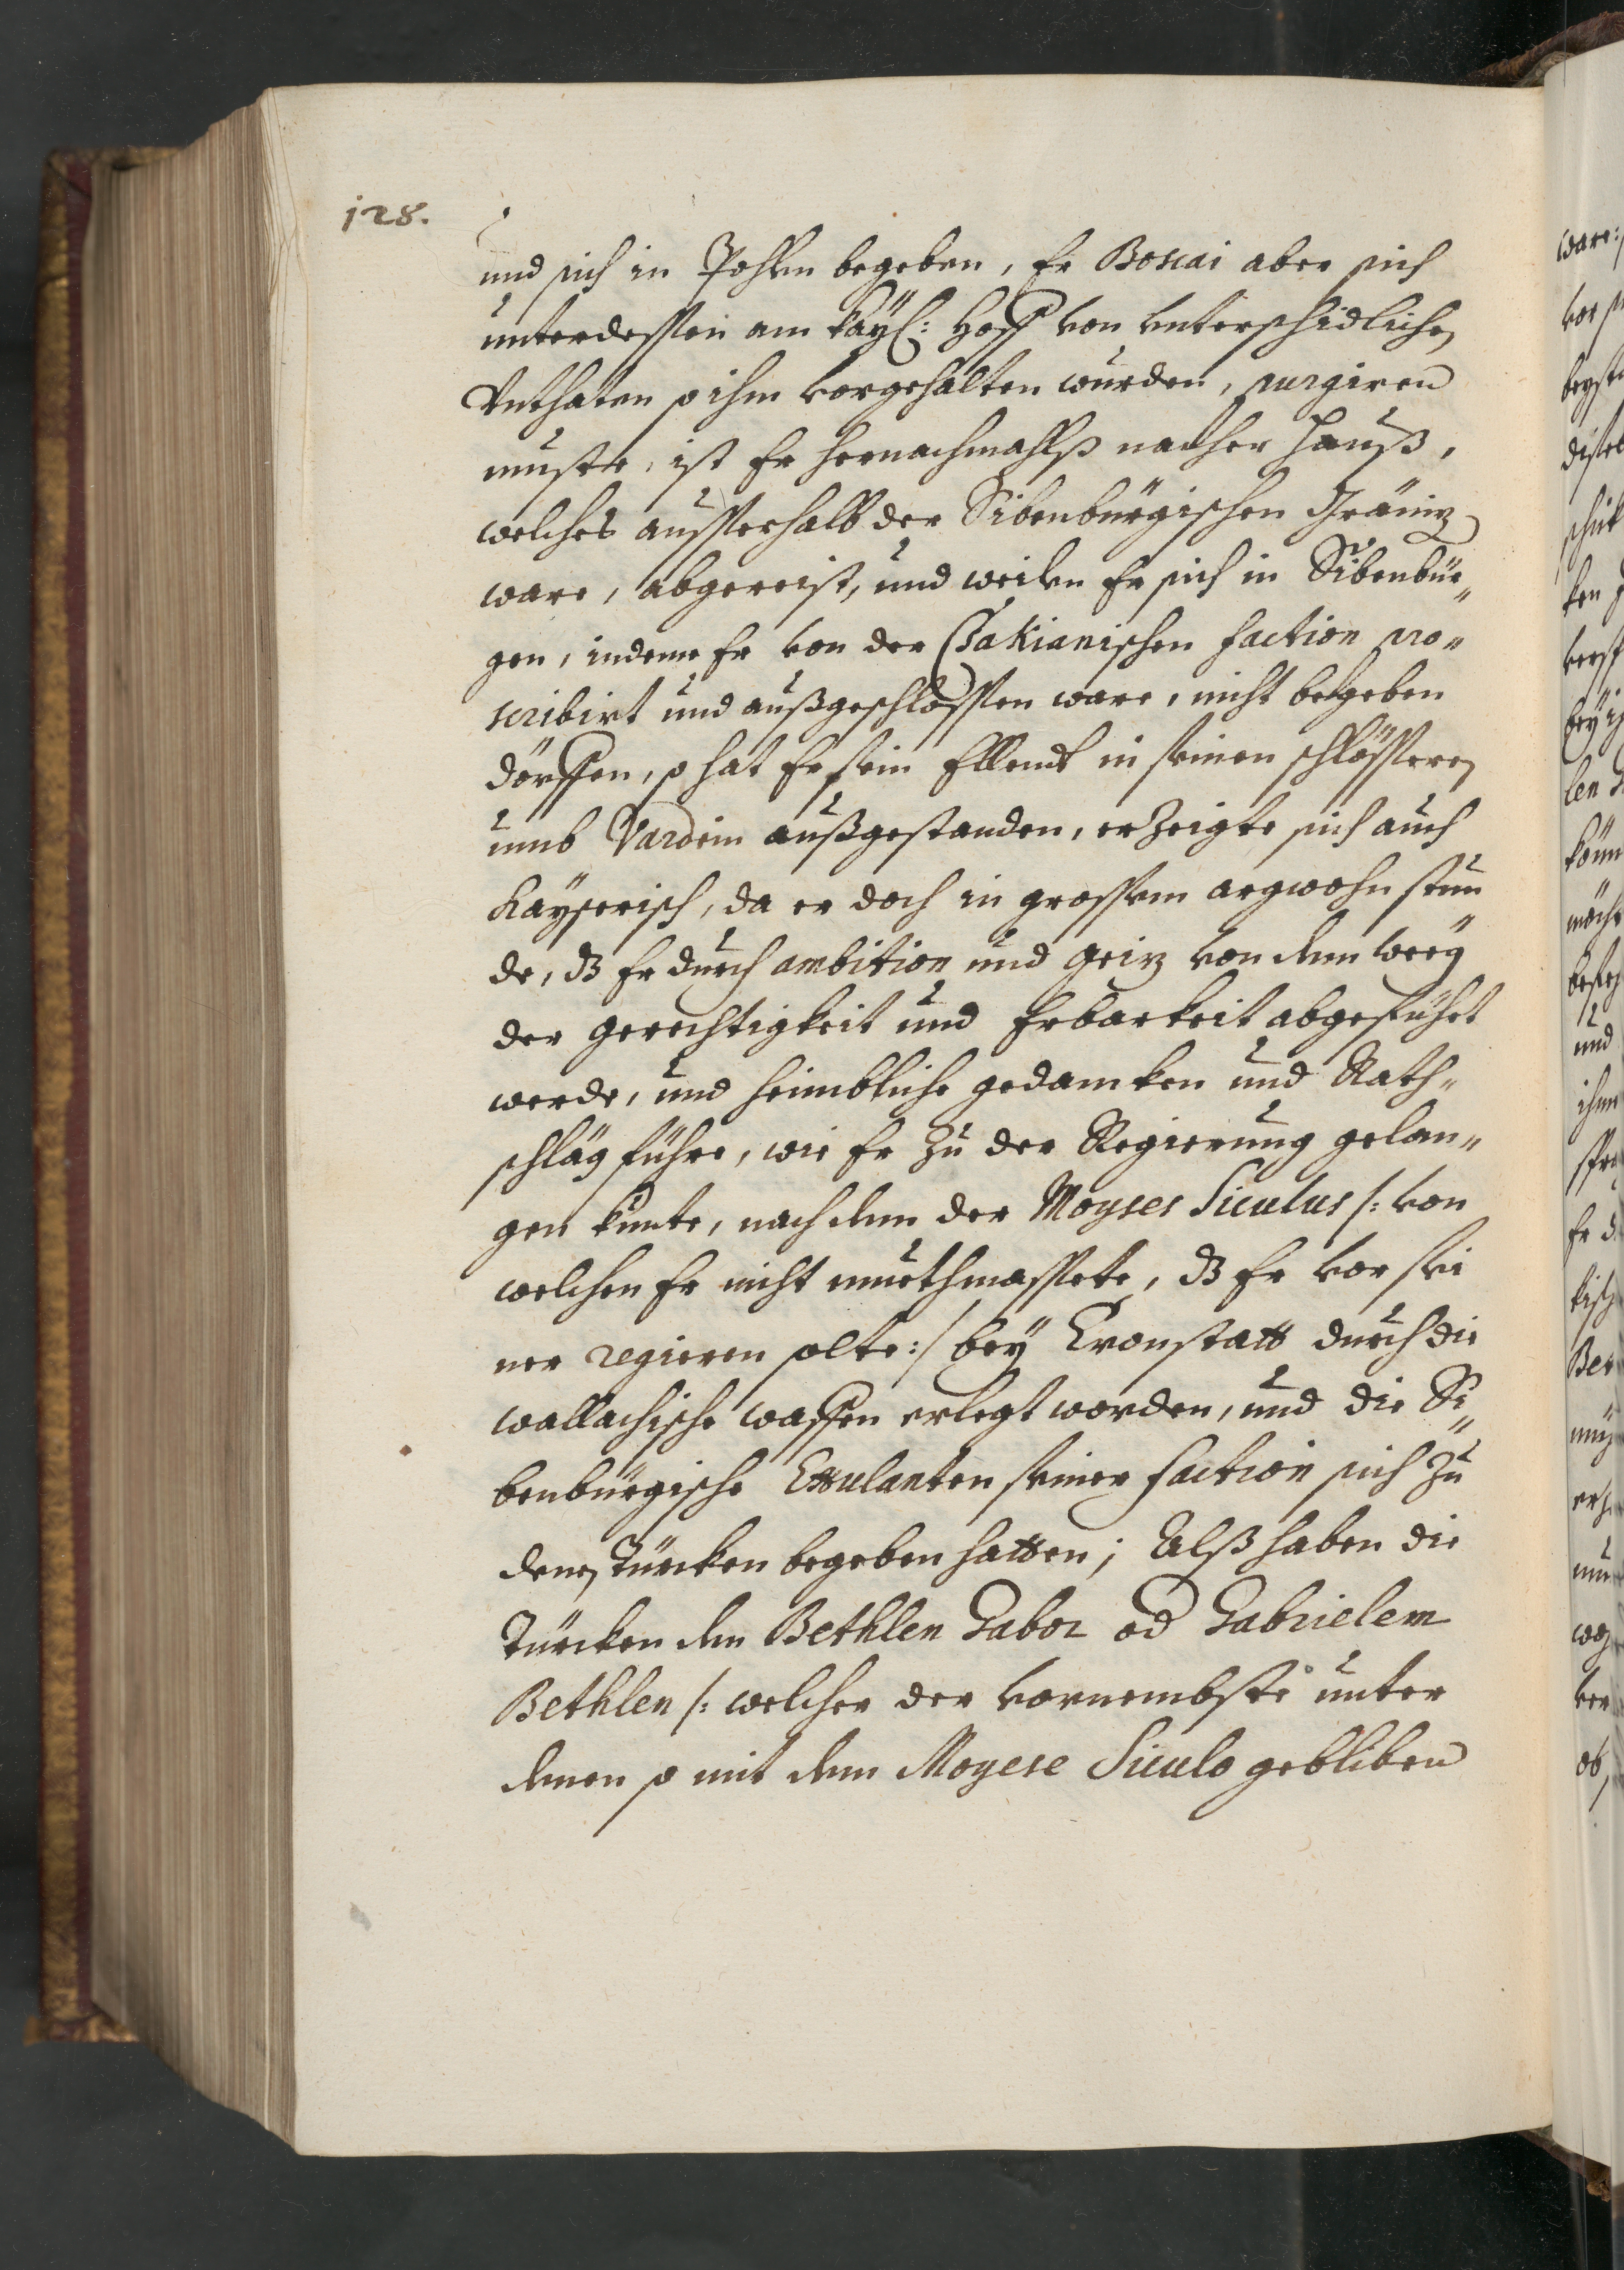 128.
und sich in Pohlen begeben, Er Boscai aber sich
unterdessen am Kayl: Hoff von unterschidlichen
Unthaten so ihm vorgehalten wurden, purgiren
muste, ist Er hernachmahlß nacher Hauß,
welches ausserhalb der Sibenbürgischen Gräniz
ware, abgereist, und weilen Er sich in Sibenbür„
gen, indeme Er von der Csakianischen faction pro„
scribirt und außgeschlossen ware, nicht begeben
dörffen, so hat Er sein Ellendt in seinen schlösseren
umb Vardein außgestanden, erzeigte sich auch
Kayserisch, da er doch in grossem argwohn stun„
de, dz Er durch ambition und geiz von dem weeg
der gerechtigkeit und Erbarkeit abgeführt
werde, und heimbliche gedancken und Rath„
schläg führe, wie Er zu der Regierung gelan„
gen kunte, nach dem der Moyses Siculus /: von
welchen Er nicht muethmassete, dz Er vor sei
ner regieren solte:/ bey Cronstatt durch die
wallachische waffen erlegt worden, und die Si„
benbürgische Exulanten seiner faction sich zu
denen Türcken begeben hatten; Alß haben die
Türcken dem Bethlen Gabor od Gabrielem
Bethlen /: welcher der vornembste unter
denen so mit dem Moyese Siculo gebliben